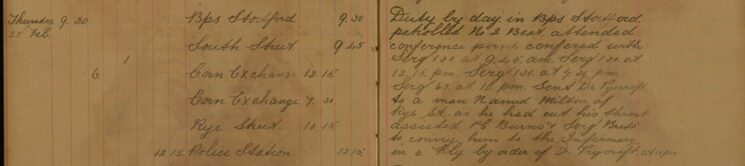 Thursday 9. 30 Bps Stortford 9.30
25 Feb. South Street 9 25
6 1 Corn Exchange 12.15
Corn Exchange 7 30
Rye Street. 10 15
12.15 Police Station 12 15
Duty by day in Bps Stortford
patrolled No 2 Beat attended
conference point conferred with
Serg 130 at 9.25. a.m. Serg 130 at
12,15, pm. Serg 130. at pm
Serg 67. at 10 pm. Sent Dr
to a man Named Milton of
Rye St. as he had cut his throat
assisted PC Burns & Serg
to convey him to the Infirmary
in a Fly by order of Dr at 11 pm